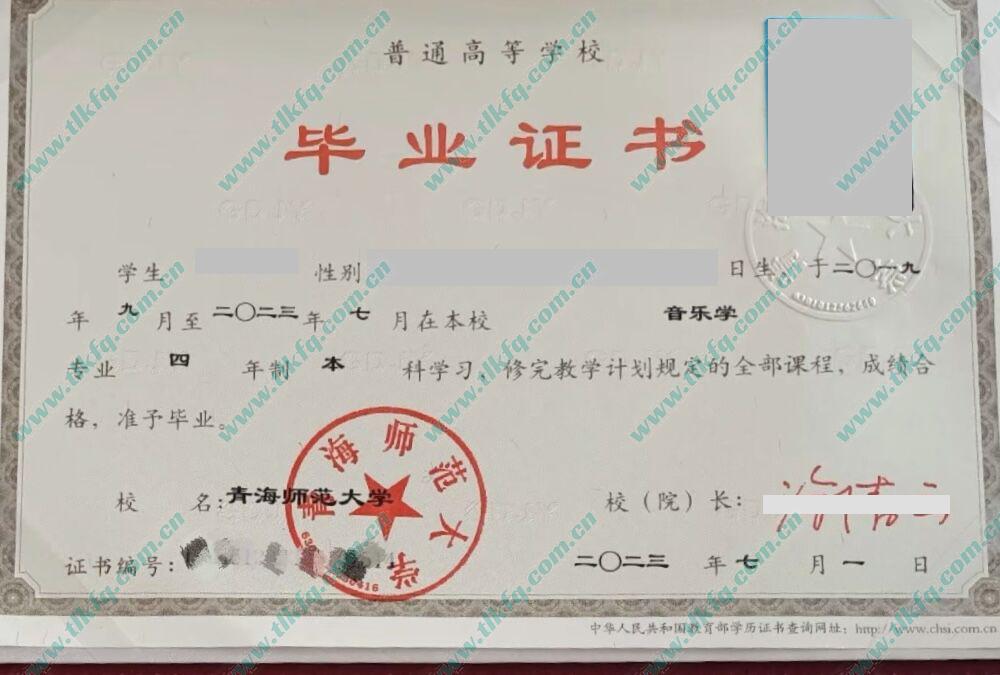 普通高等学校
毕业证书
学生 性别 日生，于二〇一九
年九月至二〇二三年七月在本校 音乐学
专业四年制本科学习，修完教学计划规定的全部课程，成绩合
格，准予毕业。
校 名：青海师范大学
校（院）长：
证书编号：
二〇二三年七月一日
青海师范大学
中华人民共和国教育部学历证书查询网址：http://www.chsi.com.cn
www.tlkfq.com.cn